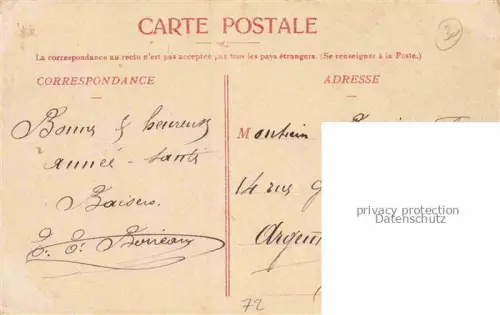 CARTE POSTALE
3
La correspondance au recto n'est pas acceptée par tous les pays étrangers. (Se renseigner à la Poste.)
CORRESPONDANCE
ADRESSE
Bonne & heureuse
année - santé
Baisers
Monsieur
14 rue
privacy protection
Datenschutz
72